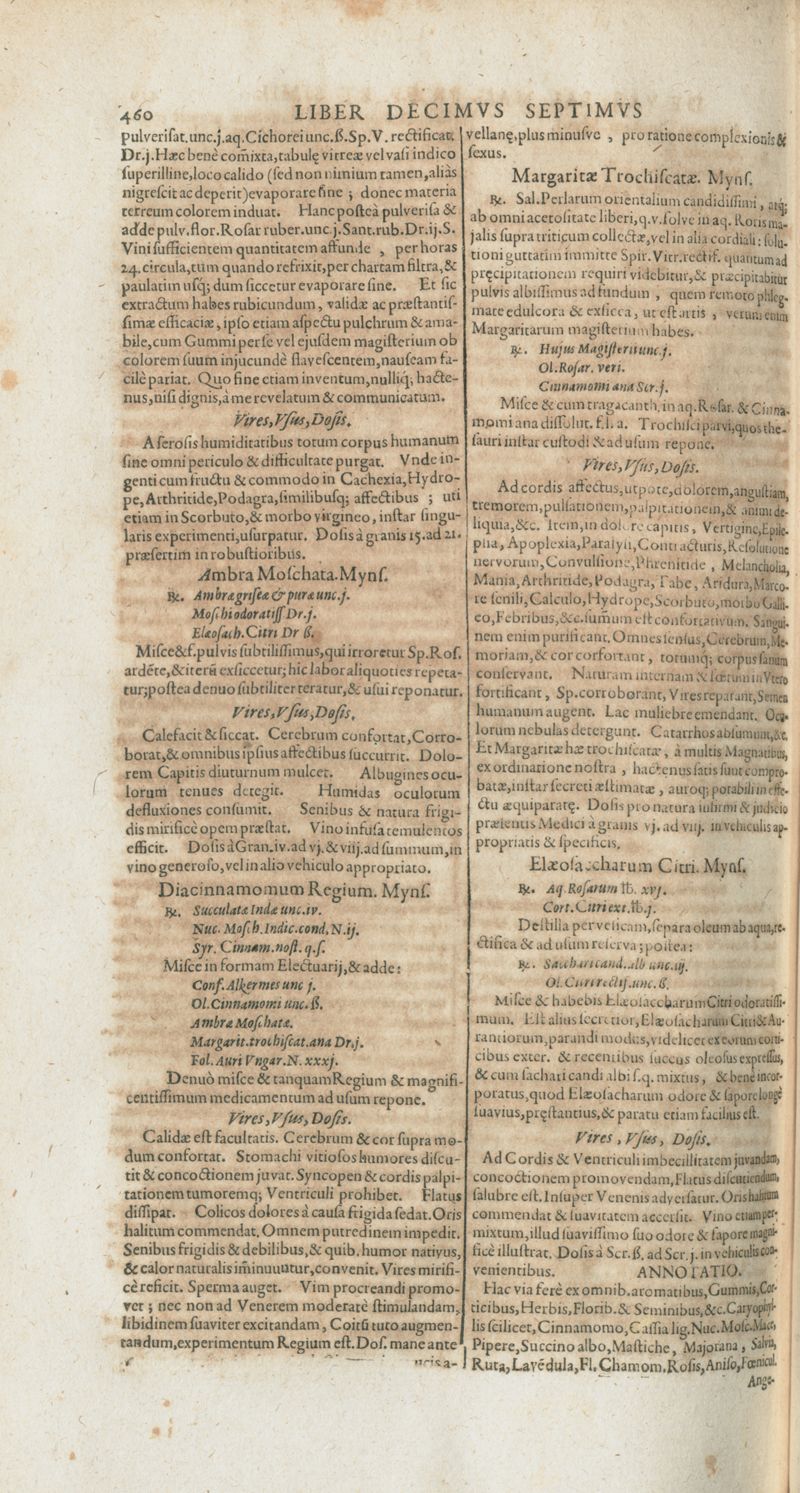 460 LIBER DECIMVS SEPTIMVS
pulveriſat.unc.j.aq.Cichorei unc.ß.Sp.V. rectificat.
Dr.j.Hæc benè com̃ixta,tabulę vitreæ vel vaſi indico
ſuperilline,loco calido (ſed non nimium tamen,aliàs
nigreſcit ac deperit)evaporare ſine ; donec materia
terreum colorem induat. Hanc poſteà pulveriſa &
adde pulv.flor.Roſar ruber.unc.j.Sant.rub.Dr.ij.S.
Vini ſufficientem quantitatem affunde , per horas
24.circula,tum quando refrixit,per chartam filtra,&
paulatim uſq; dum ſiccetur evaporare ſine. Et ſic
extractum habes rubicundum, validæ ac præſtantiſ-
ſimæ efficaciæ, ipſo etiam aſpectu pulchrum & ama-
bile,cum Gummi per ſe vel ejuſdem magiſterium ob
colorem ſuum injucundè flaveſcentem,nauſeam fa-
cilè pariat. Quo fine etiam inventum,nulliq; hacte-
nus,niſi dignis,à me revelatum & communicatum.
Vires,Vſus,Doſis.
A ſeroſis humiditatibus totum corpus humanum
ſine omni periculo & difficultate purgat. Vnde in-
genti cum fructu & commodo in Cachexia,Hydro-
pe,Arthritide,Podagra,ſimilibuſq; affectibus ; uti
etiam in Scorbuto,& morbo virgineo, inſtar ſingu-
laris experimenti,uſurpatur. Doſis à granis 15.ad 21.
præſertim in robuſtioribus.
Ambra Moſchata.Mynſ.
℞. Ambræ griſeæ & puræ unc.j.
Moſchi odoratiſſ Dr.j.
Elæoſach.Citri Dr ß.
Miſce&f.pulvis ſubtiliſſimus,qui irroretur Sp.Roſ.
ardẽte,&iterũ exſiccetur; hic labor aliquoties repeta-
tur;poſtea denuo ſubtiliter teratur,& uſui reponatur.
Vires,Vſus,Doſis.
Calefacit & ſiccat. Cerebrum confortat,Corro-
borat,& omnibus ipſius affectibus ſuccurrit. Dolo-
rem Capitis diuturnum mulcet. Albugines ocu-
lorum tenues detegit. Humidas oculorum
defluxiones conſumit. Senibus & natura frigi-
dis mirificè opem præſtat. Vino infuſa temulentos
efficit. Doſis à Gran.iv.ad vj.& viij.ad ſummum,in
vino generoſo,vel in alio vehiculo appropriato.
Diacinnamomum Regium. Mynſ.
℞. Succulatæ Indæ unc.iv.
Nuc. Moſch.Indic.cond.N.ij.
Syr. Cinnam.noſt. q.ſ.
Miſce in formam Electuarij,& adde:
Conf.Alkermes unc j.
Ol.Cinnamomi unc.ß.
Ambræ Moſchatæ.
Margarit.trochiſcat.ana Dr.j.
Fol. Auri Vngar.N. xxxj.
Denuò miſce & tanquam Regium & magnifi-
centiſſimum medicamentum ad uſum repone.
Vires,Vſus,Doſis.
Calidæ eſt facultatis. Cerebrum & cor ſupra mo-
dum confortat. Stomachi vitioſos humores diſcu-
tit & concoctionem juvat.Syncopen & cordis palpi-
tationem tumoremq; Ventriculi prohibet. Flatus
diſſipat. Colicos dolores à cauſa frigida ſedat.Oris
halitum commendat.Omnem putredinem impedit.
Senibus frigidis & debilibus,& quib.humor nativus,
& calor naturalis im̃inuuntur,convenit. Vires mirifi-
cè reficit. Sperma auget. Vim procreandi promo-
vet ; nec non ad Venerem moderatè ſtimulandam,
libidinem ſuaviter excitandam, Coitũ tuto augmen-
tandum,experimentum Regium eſt.Doſ. mane ante
vellanę,plus minuſve , pro ratione complexionis &
ſexus.
Margaritæ Trochiſcatæ. Mynſ.
℞. Sal.Perlarum orientalium candidiſſimi , atq;
ab omni acetoſitate liberi,q.v.ſolve in aq. Roris ma-
jalis ſupra triticum collectæ,vel in alia cordiali: ſolu-
tioni guttatim immitte Spir. Vitr.rectif. quantum ad
pręcipitationem requiri videbitur,& præcipitabitur
pulvis albiſſimus ad fundum , quem remoto phleg-
mate edulcora & exſicca, ut eſt artis , verum enim
Margaritarum magiſterium habes.
℞. Hujus Magiſterii unc.j.
Ol.Roſar. veri.
Cinnamomi ana Scr.j.
Miſce & cum tragacanth.in aq.Roſar. & Cinna-
momi ana diſſolut. f.l.a. Trochiſci parvi,quos the-
ſauri inſtar cuſtodi & ad uſum repone.
Vires,Vſus,Doſis.
Ad cordis affectus,utpote,dolorem,anguſtiam,
tremorem,pulſationem,palpitationem,& animi de-
liquia,&c. Item,in dolore capitis, Vertigine,Epile-
pſia, Apoplexia,Paralyſi,Contracturis,Reſolutione
nervorum,Convulſione,Phrenitide , Melancholia,
Mania,Arthritide,Podagra, Tabe, Aridura,Marco-
re ſenili,Calculo,Hydrope,Scorbuto,morbo Galli-
co,Febribus,&c.ſum̃um eſt confortativum. Sangui-
nem enim purificant.Omnes ſenſus,Cerebrum,Me-
moriam,& cor corfortant, totumq; corpus ſanum
conſervant. Naturam internam & fœtum in Vtero
fortificant, Sp.corroborant, Vires reparant,Semen
humanum augent. Lac muliebre emendant. Ocu-
lorum nebulas detergunt. Catarrhos abſumunt,&c.
Et Margaritæ hæ trochiſcatæ, à multis Magnatibus,
ex ordinatione noſtra , hactenus ſatis ſunt compro-
batæ,inſtar ſecreti æſtimatæ , auroq; potabili in effe-
ctu æquiparatę. Doſis pro natura infirmi & judicio
præſentis Medici à granis vj. ad viij. in vehiculis ap-
propriatis & ſpecificis.
Elæoſaccharum Citri. Mynſ.
℞. Aq.Roſarum ℔. xvj.
Cort.Citri ext.℔.j.
Deſtilla per veſicam,ſepara oleum ab aqua,re-
ctifica & ad uſum reſerva;poſtea:
℞. Sacchari cand.alb unc.iij.
Ol.Citri rectif.unc.ß.
Miſce & habebis Elæoſaccharum Citri odoratiſſi-
mum. Eſt alius ſecretior,Elæoſacharum Citri&Au-
rantiorum,parandi modus,videlicet ex eorum corti-
cibus exter. & recentibus ſuccus oleoſus expreſſus,
& cum ſachari candi albi ſ.q. mixtus, & bene incor-
poratus,quod Elæoſacharum odore & ſapore longè
ſuavius,pręſtantius,& paratu etiam facilius eſt.
Vires , Vſus, Doſis.
Ad Cordis & Ventriculi imbecillitatem juvandam,
concoctionem promovendam,Flatus diſcutiendum,
ſalubre eſt.Inſuper Venenis adverſatur. Oris halitum
commendat & ſuavitatem accerſit. Vino etiam per-
mixtum,illud ſuaviſſimo ſuo odore & ſapore magni-
ficè illuſtrat. Doſis à Scr.ß. ad Scr.j. in vehiculis con-
venientibus. ANNOTATIO.
Hac via ferè ex omnib.aromatibus,Gummis,Cor-
ticibus,Herbis,Florib.& Seminibus,&c.Caryophyl-
lis ſcilicet,Cinnamomo,Caſſia lig.Nuc.Moſc.Mace,
Pipere,Succino albo,Maſtiche, Majorana, Salvia,
Ruta,Lavẽdula,Fl.Chamom.Roſis,Aniſo,Fœnicul.
Ange-